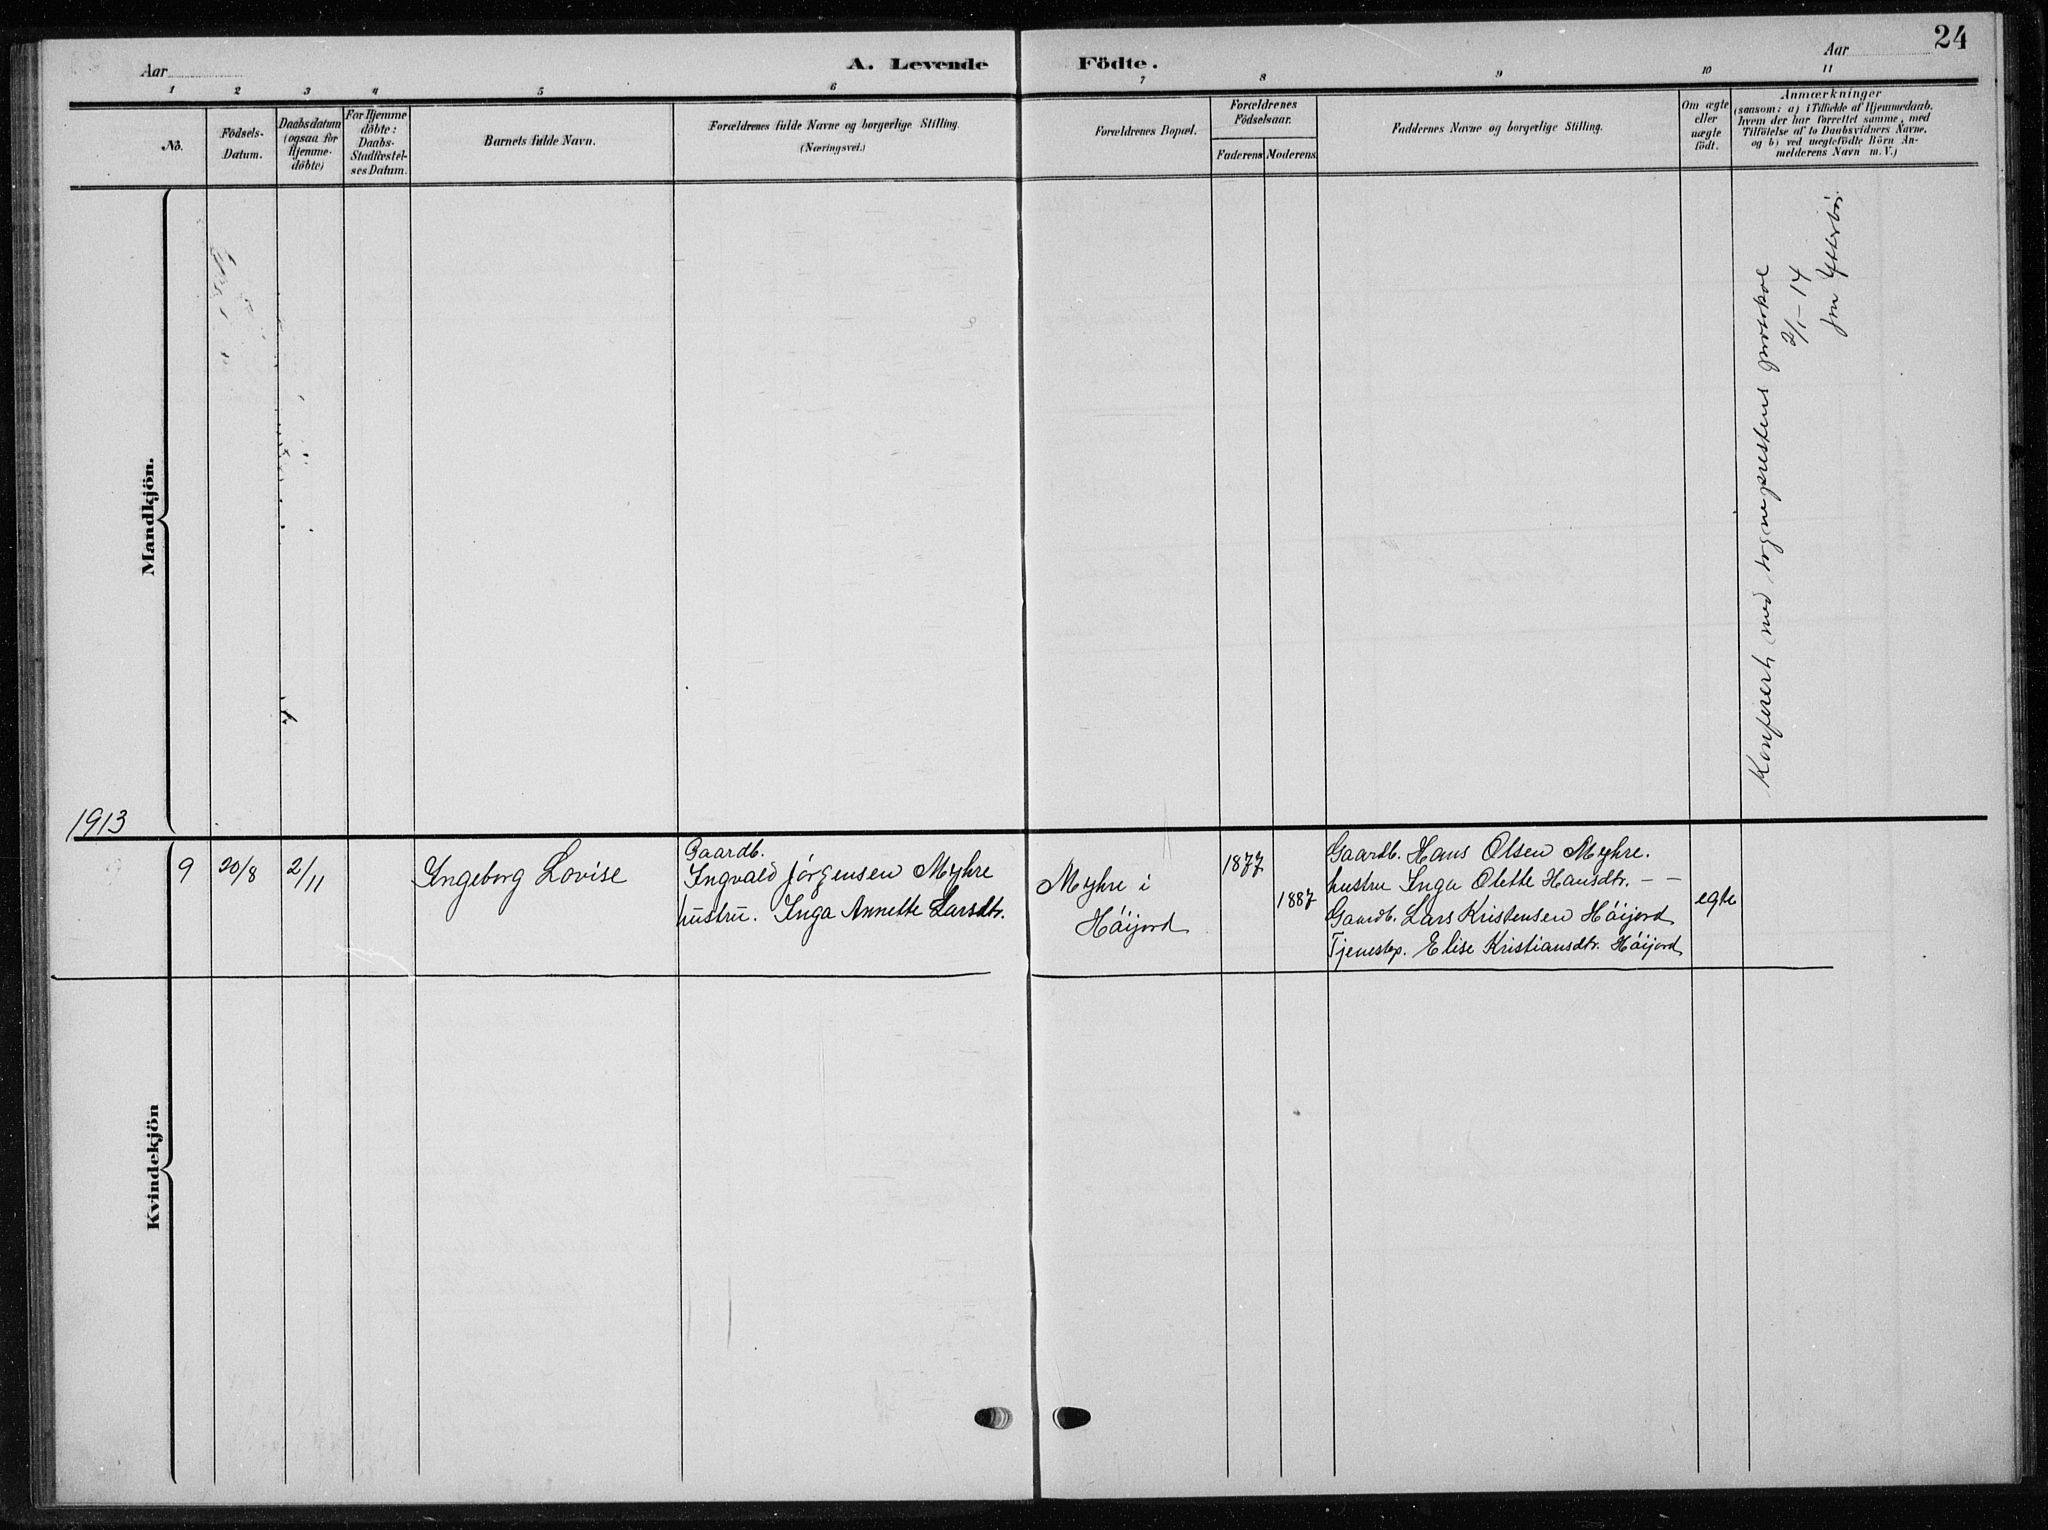 24
Aar
A. Levende Födte.
Aar
1 2 3 4 5 6 7 8 9 10 11
No.
Födsels-
Datum.
Daabsdatum
(ogsaa for
Hjemme-
döbte)
For Hjemme
döbte:
Daabs-
Stadfæstel-
ses Datum.
Barnets fulde Navn.
Forældrenes fulde Navne og borgerlige Stilling.
(Næringsvei.)
Forældrenes Bopæl.
Forældrenes
Födselsaar.
Faderens Moderens
Faddernes Navne og borgerlige Stilling.
Om ægte
eller
uægte
födt.
Anmærkninger
(saasom: a) i Tilfælde af Hjemmedaab.
hvem der har forrettet samme, med
Tilföielse af to Daabsvidners Navne,
og b) ved uægtefödte Börn An-
melderens Navn m. V.)
Mandkjön.
Konferert med sogneprestens protokol
2/1-14
1913
Kvindekjön
9
20/8
2/11
Ingeborg Lovise
Gaardb.
Ingvald Jörgensen Myhre
hustru. Inga Annette Larsdtr.
Myhre i
Höijord
1877
1887
Gaardb. Hans Olsen Myhre.
hustru Inga Olette Hansdtr. - -
Gaardb. Lars Kristensen Höijord
Tjenestep. Elise Kristiansdtr. Höijord
egte